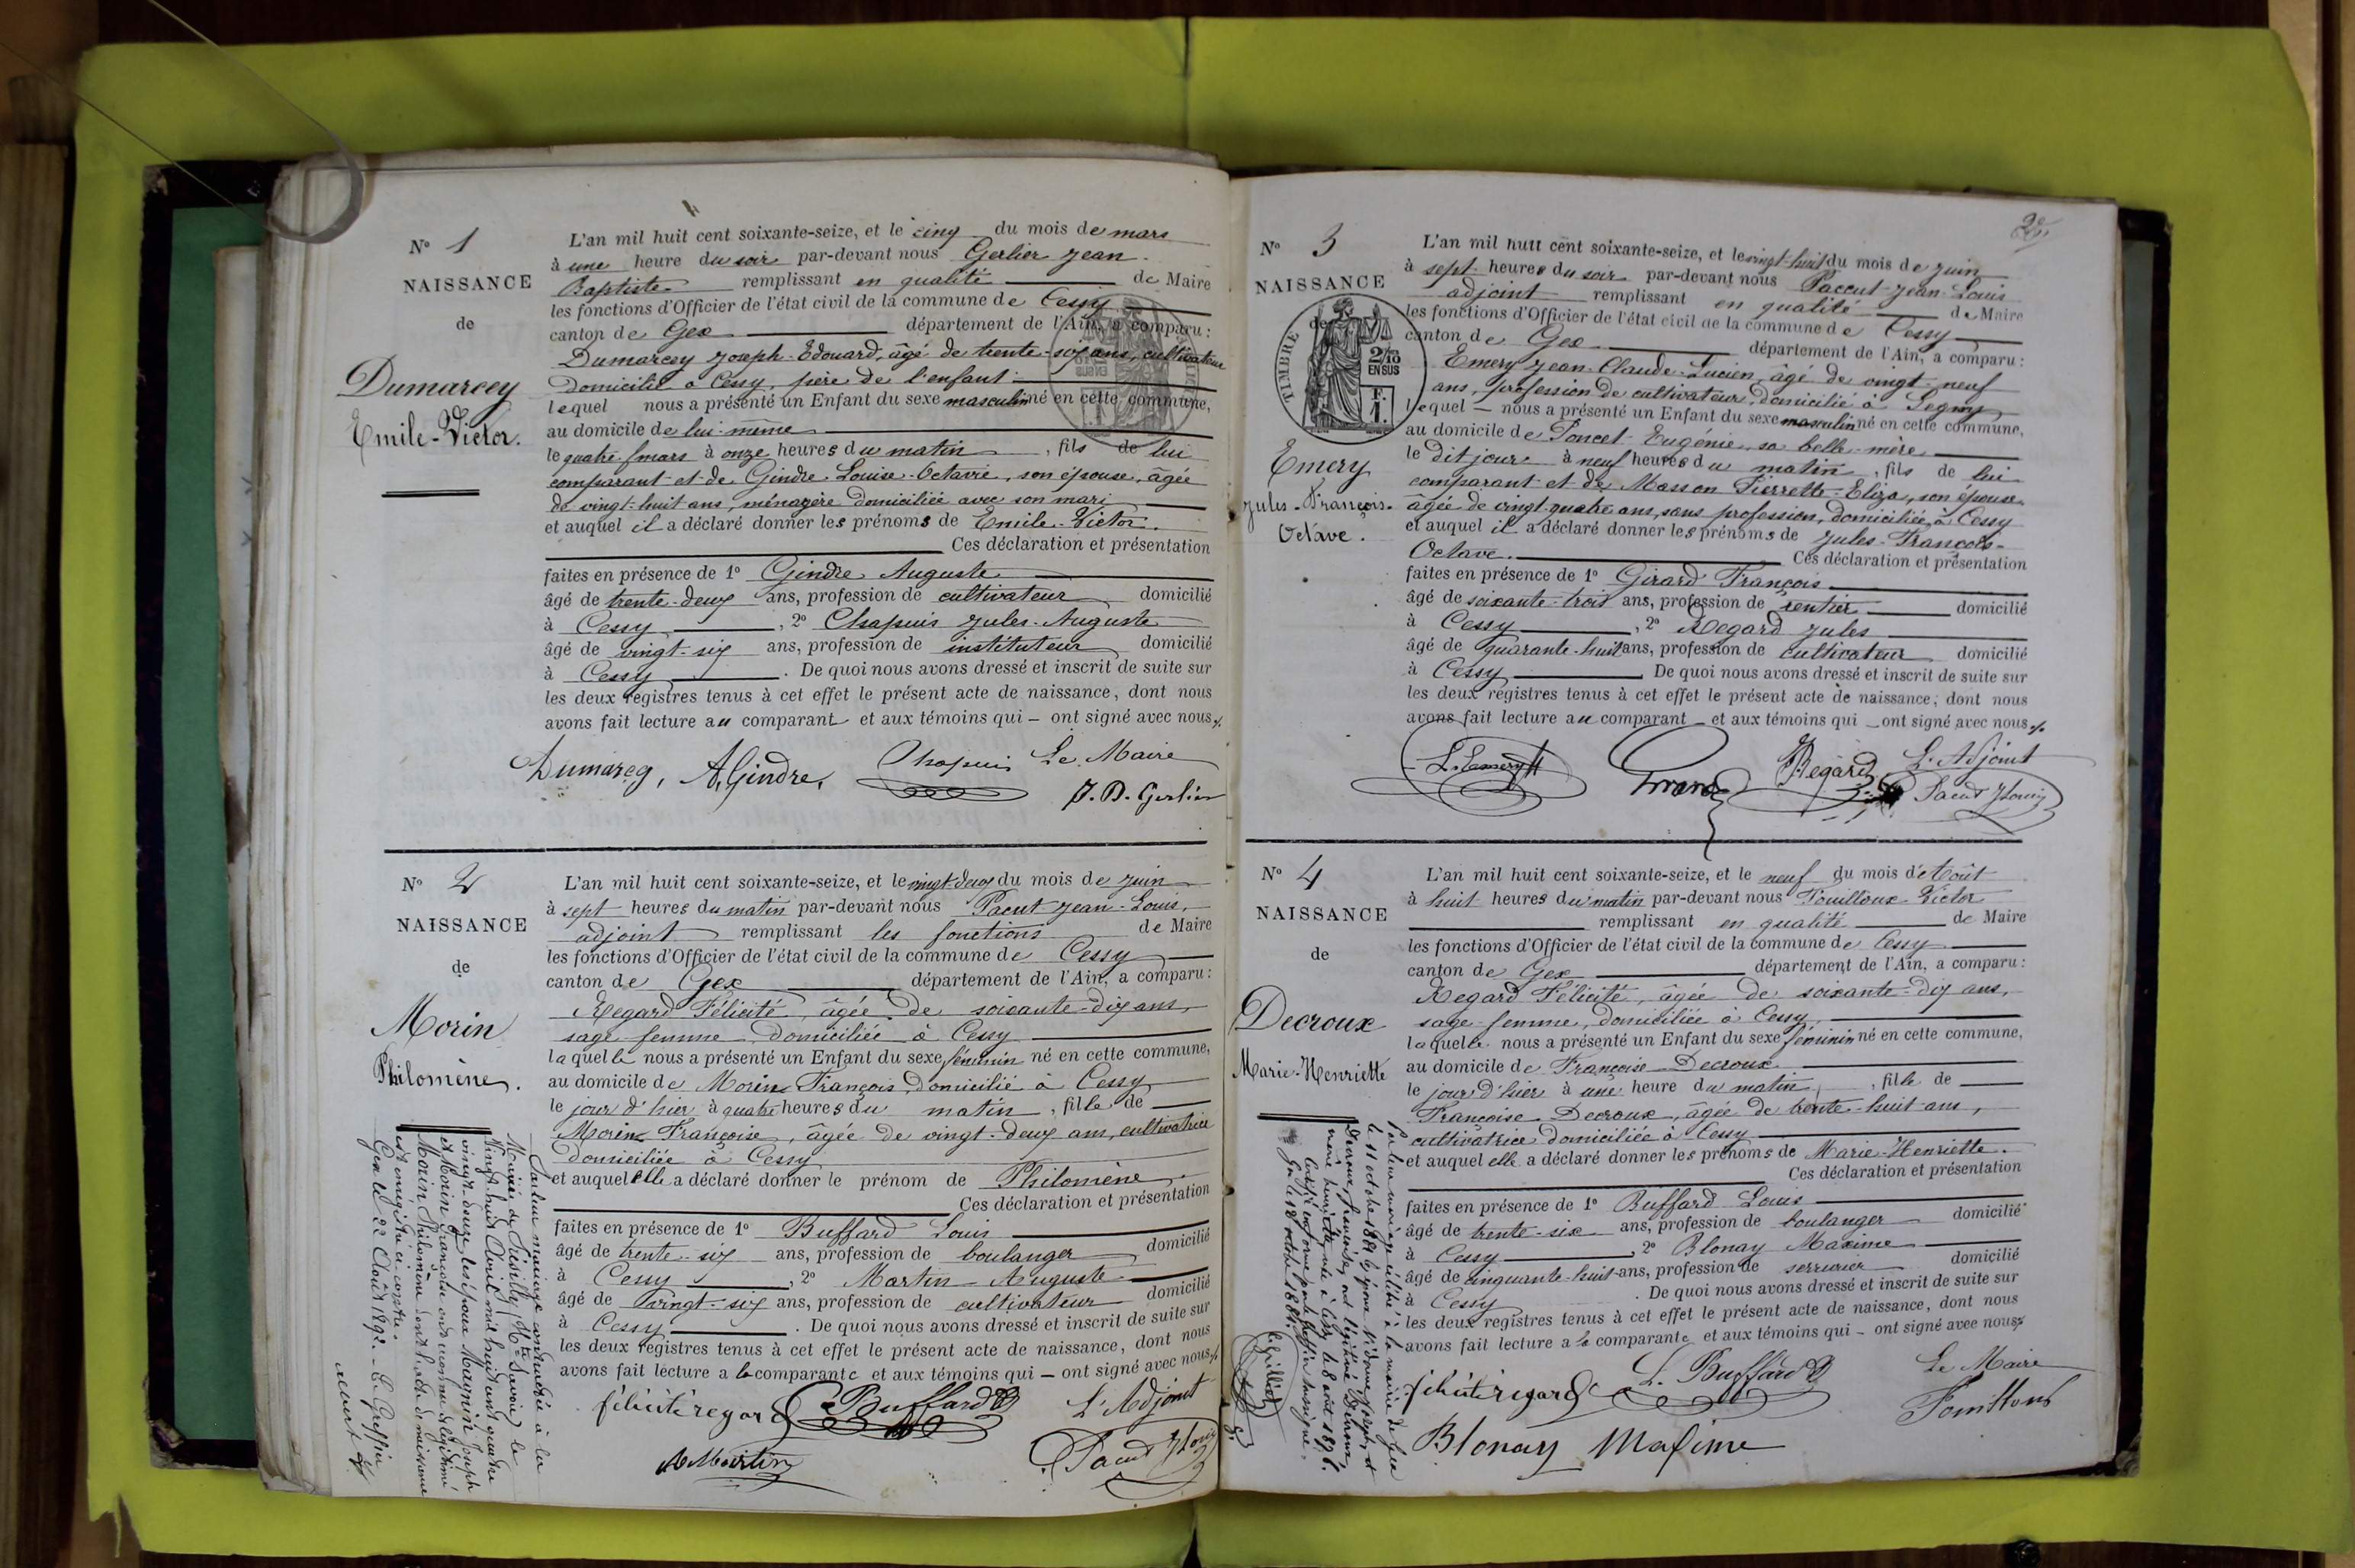 N° 1
NAISSANCE
de
Dumarcey
Emile-Victor.
L'an mil huit cent soixante-seize, et le cinq du mois de mars
à une heure du soir par-devant nous Gerlier Jean-
Baptiste remplissant en qualité de Maire
les fonctions d'Officier de l'état civil de la commune de Cessy
canton de Gex département de l'Ain, a comparu :
Dumarcey Joseph-Edouard, âgé de trente-six ans, cultivateur
domicilié à Cessy, père de l'enfant
lequel nous a présenté un Enfant du sexe masculin né en cette commune,
au domicile de lui-même
le quatre mars à onze heures du matin, fils de lui
comparant et de Gindre Louise-Octavie, son épouse, âgée
de vingt-huit ans, ménagère domiciliée avec son mari
et auquel il a déclaré donner les prénoms de Emile-Victor.
Ces déclaration et présentation
faites en présence de 1° Gindre Auguste
âgé de trente-deux ans, profession de cultivateur domicilié
à Cessy, 2° Chapuis Jules-Auguste
âgé de vingt-six ans, profession de instituteur domicilié
à Cessy. De quoi nous avons dressé et inscrit de suite sur
les deux registres tenus à cet effet le présent acte de naissance, dont nous
avons fait lecture au comparant et aux témoins qui – ont signé avec nous
Dumarcey, A. Gindre, Chapuis Le Maire
J. B. Gerlier
N° 2
NAISSANCE
de
Morin
Philomène.
L'an mil huit cent soixante-seize, et le vingt-deux du mois de juin
à sept heures du matin par-devant nous Pacut Jean-Louis,
adjoint remplissant les fonctions de Maire
les fonctions d'Officier de l'état civil de la commune de Cessy
canton de Gex département de l'Ain, a comparu :
Regard Félicité, âgée de soixante-dix ans,
sage-femme domiciliée à Cessy
laquelle nous a présenté un Enfant du sexe féminin né en cette commune,
au domicile de Morin François, domicilié à Cessy
le jour d'hier à quatre heures du matin, fille de
Morin Françoise, âgée de vingt-deux ans, cultivatrice
domiciliée à Cessy
et auquel elle a déclaré donner le prénom de Philomène.
Ces déclaration et présentation
faites en présence de 1° Buffard Louis
âgé de trente-six ans, profession de boulanger domicilié
à Cessy, 2° Martin Auguste
âgé de vingt-six ans, profession de cultivateur domicilié
à Cessy. De quoi nous avons dressé et inscrit de suite sur
les deux registres tenus à cet effet le présent acte de naissance, dont nous
avons fait lecture a la comparante et aux témoins qui – ont signé avec nous
félicité regard L. Buffard L'Adjoint
A Martin Pacut J Louis
Par leur mariage contracté à la
Mairie de (Hte-Savoie) le
vingt-huit Avril mil huit cent quatre
vingt-deux les époux Magnin Joseph
et Morin Françoise ont reconnu et légitimé
Morin Philomène dont l'acte de naissance
est inscrit ci-contre.
Gex le 22 Août 1892. – Le Greffier
N° 3
NAISSANCE
de
TIMBRE
2/10
EN SUS
F.
1.
Emery
Jules-François-
Octave.
L'an mil huit cent soixante-seize, et le vingt-huit du mois de juin
à sept heures du soir par-devant nous Paccut Jean-Louis
adjoint remplissant en qualité de Maire
les fonctions d'Officier de l'état civil de la commune de Cessy
canton de Gex département de l'Ain, a comparu :
Emery Jean-Claude-Lucien, âgé de vingt-neuf
ans, profession de cultivateur, domicilié à Segny
lequel – nous a présenté un Enfant du sexe masculin né en cette commune,
au domicile de Poncet Eugénie, sa belle-mère
le dit jour à neuf heures du matin, fils de lui
comparant et de Masson Pierrette-Eliza, son épouse
âgée de vingt-quatre ans, sans profession, domiciliée à Cessy
et auquel il a déclaré donner les prénoms de Jules-François-
Octave. Ces déclaration et présentation
faites en présence de 1° Girard François
âgé de soixante-trois ans, profession de rentier domicilié
à Cessy, 2° Regard Jules
âgé de quarante-huit ans, profession de cultivateur domicilié
à Cessy De quoi nous avons dressé et inscrit de suite sur
les deux registres tenus à cet effet le présent acte de naissance, dont nous
avons fait lecture au comparant et aux témoins qui – ont signé avec nous
L. Emery Girard Regard L'Adjoint
Pacut J Louis
N° 4
NAISSANCE
de
Decroux
Marie-Henriette
L'an mil huit cent soixante-seize, et le neuf du mois d'Août
à huit heures du matin par-devant nous Fouilloux Victor
remplissant en qualité de Maire
les fonctions d'Officier de l'état civil de la commune de Cessy
canton de Gex département de l'Ain, a comparu :
Regard Félicité, âgée de soixante-dix ans,
sage-femme, domiciliée à Cessy,
laquelle nous a présenté un Enfant du sexe féminin né en cette commune,
au domicile de Françoise Decroux
le jour d'hier à une heure du matin, fille de
Françoise Decroux, âgée de trente-huit ans,
cultivatrice domiciliée à Cessy
et auquel elle a déclaré donner les prénoms de Marie-Henriette.
Ces déclaration et présentation
faites en présence de 1° Buffard Louis
âgé de trente-six ans, profession de boulanger domicilié
à Cessy, 2° Blonay Maxime
âgé de cinquante-huit ans, profession de serrurier domicilié
à Cessy. De quoi nous avons dressé et inscrit de suite sur
les deux registres tenus à cet effet le présent acte de naissance, dont nous
avons fait lecture a la comparante et aux témoins qui – ont signé avec nous
félicité regard L. Buffard Le Maire
Blonay Maxime Fouilloux
Par leur mariage célébré à la mairie de Gex
le 11 octobre 1881 les époux Joseph et
Decroux Françoise, ont légitimé Decroux
marie henriette née à Cessy le 8 août 1876.
Certifié conforme par le Greffier soussigné,
Gex le 18 octobre 1881.